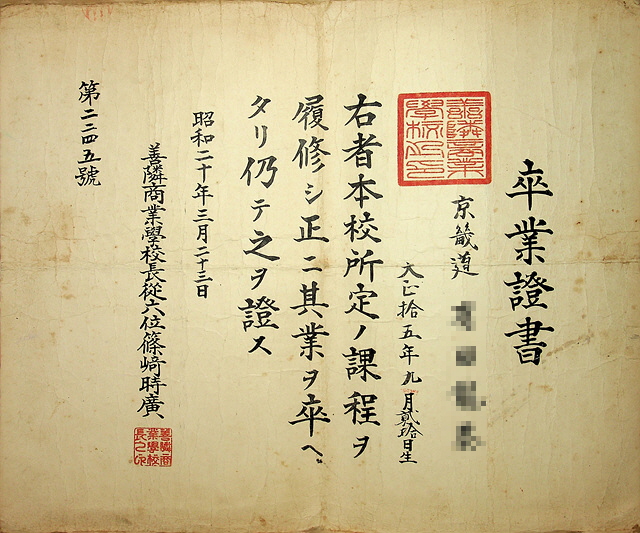 卒業證書
京畿道
大正拾五年九月貳拾日生
右者本校所定ノ課程ヲ
履修シ正ニ其業ヲ卒ヘ
タリ仍テ之ヲ證ス
昭和二十年三月二十三日
善隣商業學校長從六位篠﨑時廣
善隣商業學校長之印
第二二四五號
善隣商業學校之印